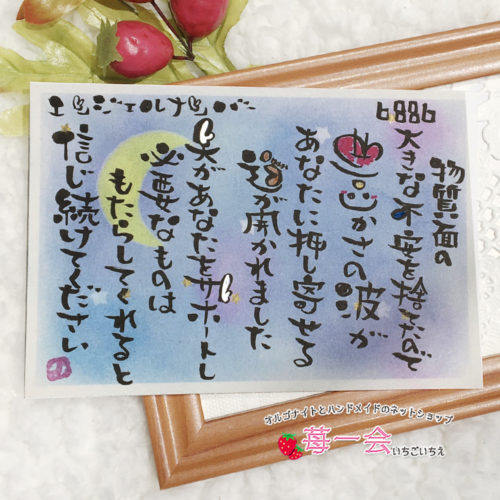 エンジェルナンバー
6886
物質面の
大きな不安を捨てたので
豊かさの波が
あなたに押し寄せる
道が開かれました
天があなたをサポートし
必要なものは
もたらしてくれると
信じ続けてください
オルゴナイトとハンドメイドのネットショップ
苺一会いちごいちえ